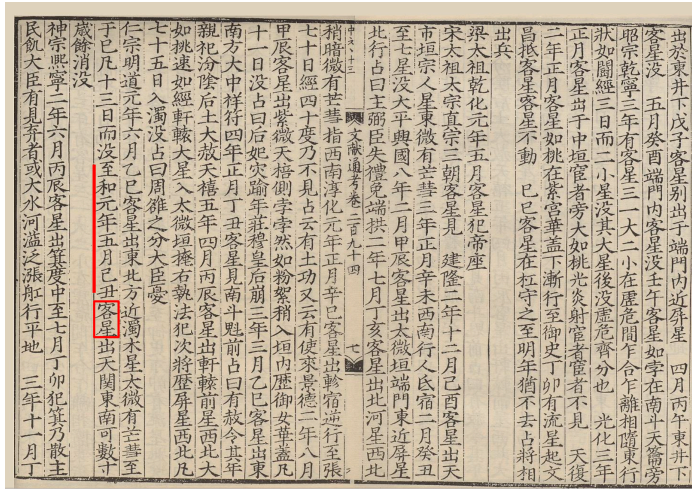 出於東井下戊子客星別出于端門內近屏星　四月丙午東井下
客星沒　五月癸酉端門內客星沒壬午客星如孛在南斗天籥旁
昭宗乾寧三年有客星三一大二小在虛危間乍合乍離相隨東行
狀如鬬經三日而二小星沒其大星後沒虛危齊分也　光化三年
正月客星出于中垣宦者旁大如桃光炎射宦者宦者不見　天復
二年正月客星如桃在紫宮華蓋下漸行至御史丁卯有流星起文
昌抵客星客星不動　己巳客星在扛守之至明年猶不去占將相
出兵
梁太祖乾化元年五月客星犯帝座
宋太祖太宗真宗三朝客星見　建隆二年十二月己酉客星出天
市垣宗人星東微有芒彗三年正月辛未西南行入氐宿二月癸丑
至七星沒太平興國八年二月甲辰客星出太微垣端門東近屏星
北行占曰主弼臣失禮免端拱二年七月丁亥客星出北河星西北
文献通考卷二百九十四　七
稍暗微有芒彗指西南淳化元年正月辛巳客星出軫宿逆行至張
七十日經四十度乃不見占云有土功又云有使來景德二年八月
甲辰客星出紫微天棓側孛孛然如粉絮稍入垣內歷御女華蓋凡
十一日沒占曰后妃災踰年莊穆皇后崩三年三月乙巳客星出東
南方大中祥符四年正月丁丑客星見南斗魁前占曰有赦令其年
親祀汾陰后土大赦天禧五年四月丙辰客星出軒轅前星西北大
如桃速如經軒轅大星入太微垣掩右執法犯次將歷屏星西北凡
七十五日入濁沒占曰周雒之分大臣憂
仁宗明道元年六月乙巳客星出東北方近濁木星太微有芒彗至
于巳凡十三日而沒至和元年五月己丑客星出天關東南可數寸
歲餘消沒
神宗熙寧二年六月丙辰客星出箕度中至七月丁卯犯箕乃散主
民飢大臣有見弃者或大水河溢泛漲舡行平地　三年十一月丁